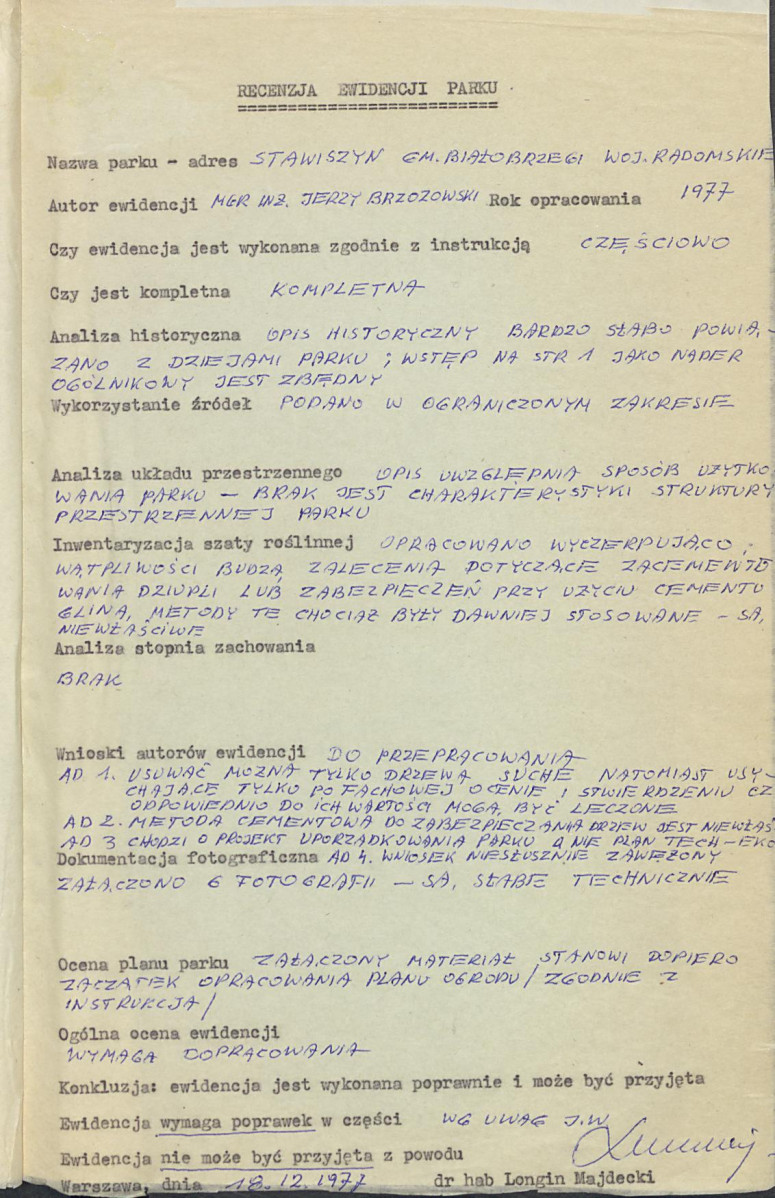 RECENZJA EWIDENCJI PARKU
Nazwa parku - adres STAWISZYN GM. BIAŁOBRZEGI WOJ. RADOMSKIE
Autor ewidencji MGR INŻ. JERZY BRZOZOWSKI Rok opracowania 1977
Czy ewidencja jest wykonana zgodnie z instrukcją CZĘŚCIOWO
Czy jest kompletna KOMPLETNA
Analiza historyczna OPIS HISTORYCZNY BARDZO SŁABO POWIĄ-
ZANO Z DZIEJAMI PARKU; WSTĘP NA STR 1 JAKO NADER
OGÓLNIKOWY JEST ZBĘDNY
Wykorzystanie źródeł PODANO W OGRANICZONYM ZAKRESIE
Analiza układu przestrzennego OPIS UWZGLĘDNIA SPOSÓB UŻYTKO
WANIA PARKU - BRAK JEST CHARAKTERYSTYKI STRUKTURY
PRZESTRZENNEJ PARKU
Inwentaryzacja szaty roślinnej OPRACOWANO WYCZERPUJĄCO;
WĄTPLIWOŚCI BUDZĄ ZALECENIA DOTYCZĄCE ZACEMENTO
WANIA DZIUPLI LUB ZABEZPIECZEŃ PRZY UŻYCIU CEMENTU
GLINĄ, METODY TE CHOCIAŻ BYŁY DAWNIEJ STOSOWANE - SĄ
NIEWŁAŚCIWE
Analiza stopnia zachowania
BRAK
Wnioski autorów ewidencji DO PRZEPRACOWANIA
AD 1. USUWAĆ MOŻNA TYLKO DRZEWA SUCHE NATOMIAST USY-
CHAJĄCE TYLKO PO FACHOWEJ OCENIE I STWIERDZENIU CZ
ODPOWIEDNIO DO ICH WARTOŚCI MOGĄ BYĆ LECZONE
AD 2. METODA CEMENTOWA DO ZABEZPIECZANIA DRZEW JEST NIEWŁAŚ
AD 3 CHODZI O PROJEKT UPORZĄDKOWANIA PARKU A NIE PLAN TECH-EKO
Dokumentacja fotograficzna AD 4. WNIOSEK NIESŁUSZNIE ZAWĘŻONY
ZAŁĄCZONO 6 FOTOGRAFII - SĄ SŁABE TECHNICZNIE
Ocena planu parku ZAŁĄCZONY MATERIAŁ STANOWI DOPIERO
ZACZĄTEK OPRACOWANIA PLANU OGRODU / ZGODNIE Z
INSTRUKCJĄ /
Ogólna ocena ewidencji
WYMAGA DOPRACOWANIA
Konkluzja: ewidencja jest wykonana poprawnie i może być przyjęta
Ewidencja wymaga poprawek w części WG UWAG J.W.
Ewidencja nie może być przyjęta z powodu
Warszawa, dnia 18.12.1977 dr hab Longin Majdecki